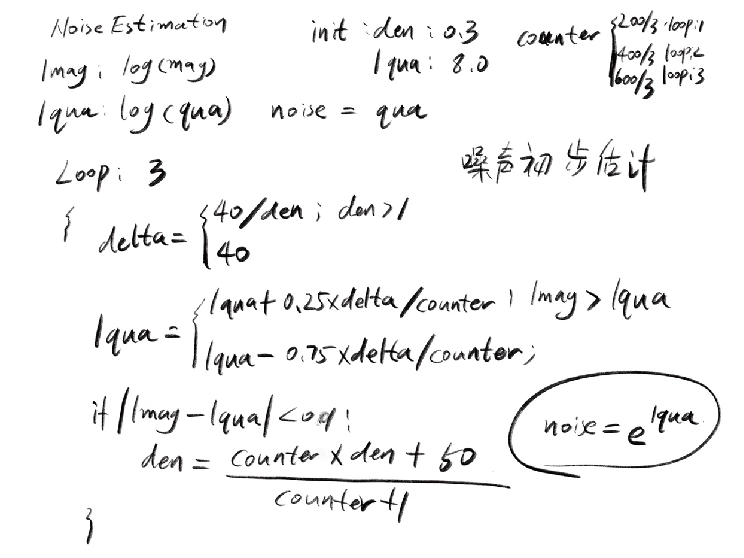 Noise Estimation
init : den : 0.3
lqua : 8.0
counter { 200/3 loop:1
400/3 loop:2
600/3 loop:3
lmag : log(mag)
lqua : log(qua) noise = qua
噪声初步估计
Loop : 3
{
delta = { 40/den ; den>1
40
lqua = { lqua + 0.25×delta/counter ; lmag > lqua
lqua - 0.75×delta/counter ;
if |lmag - lqua| <
den = counter × den + 50
counter +1
noise = e^lqua
}